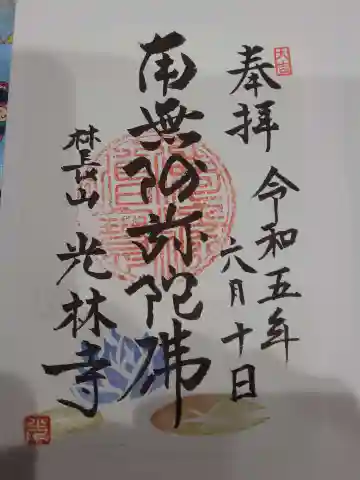 大吉
奉拝
令和五年
六月十日
南無阿弥陀佛
林長山
光林寺